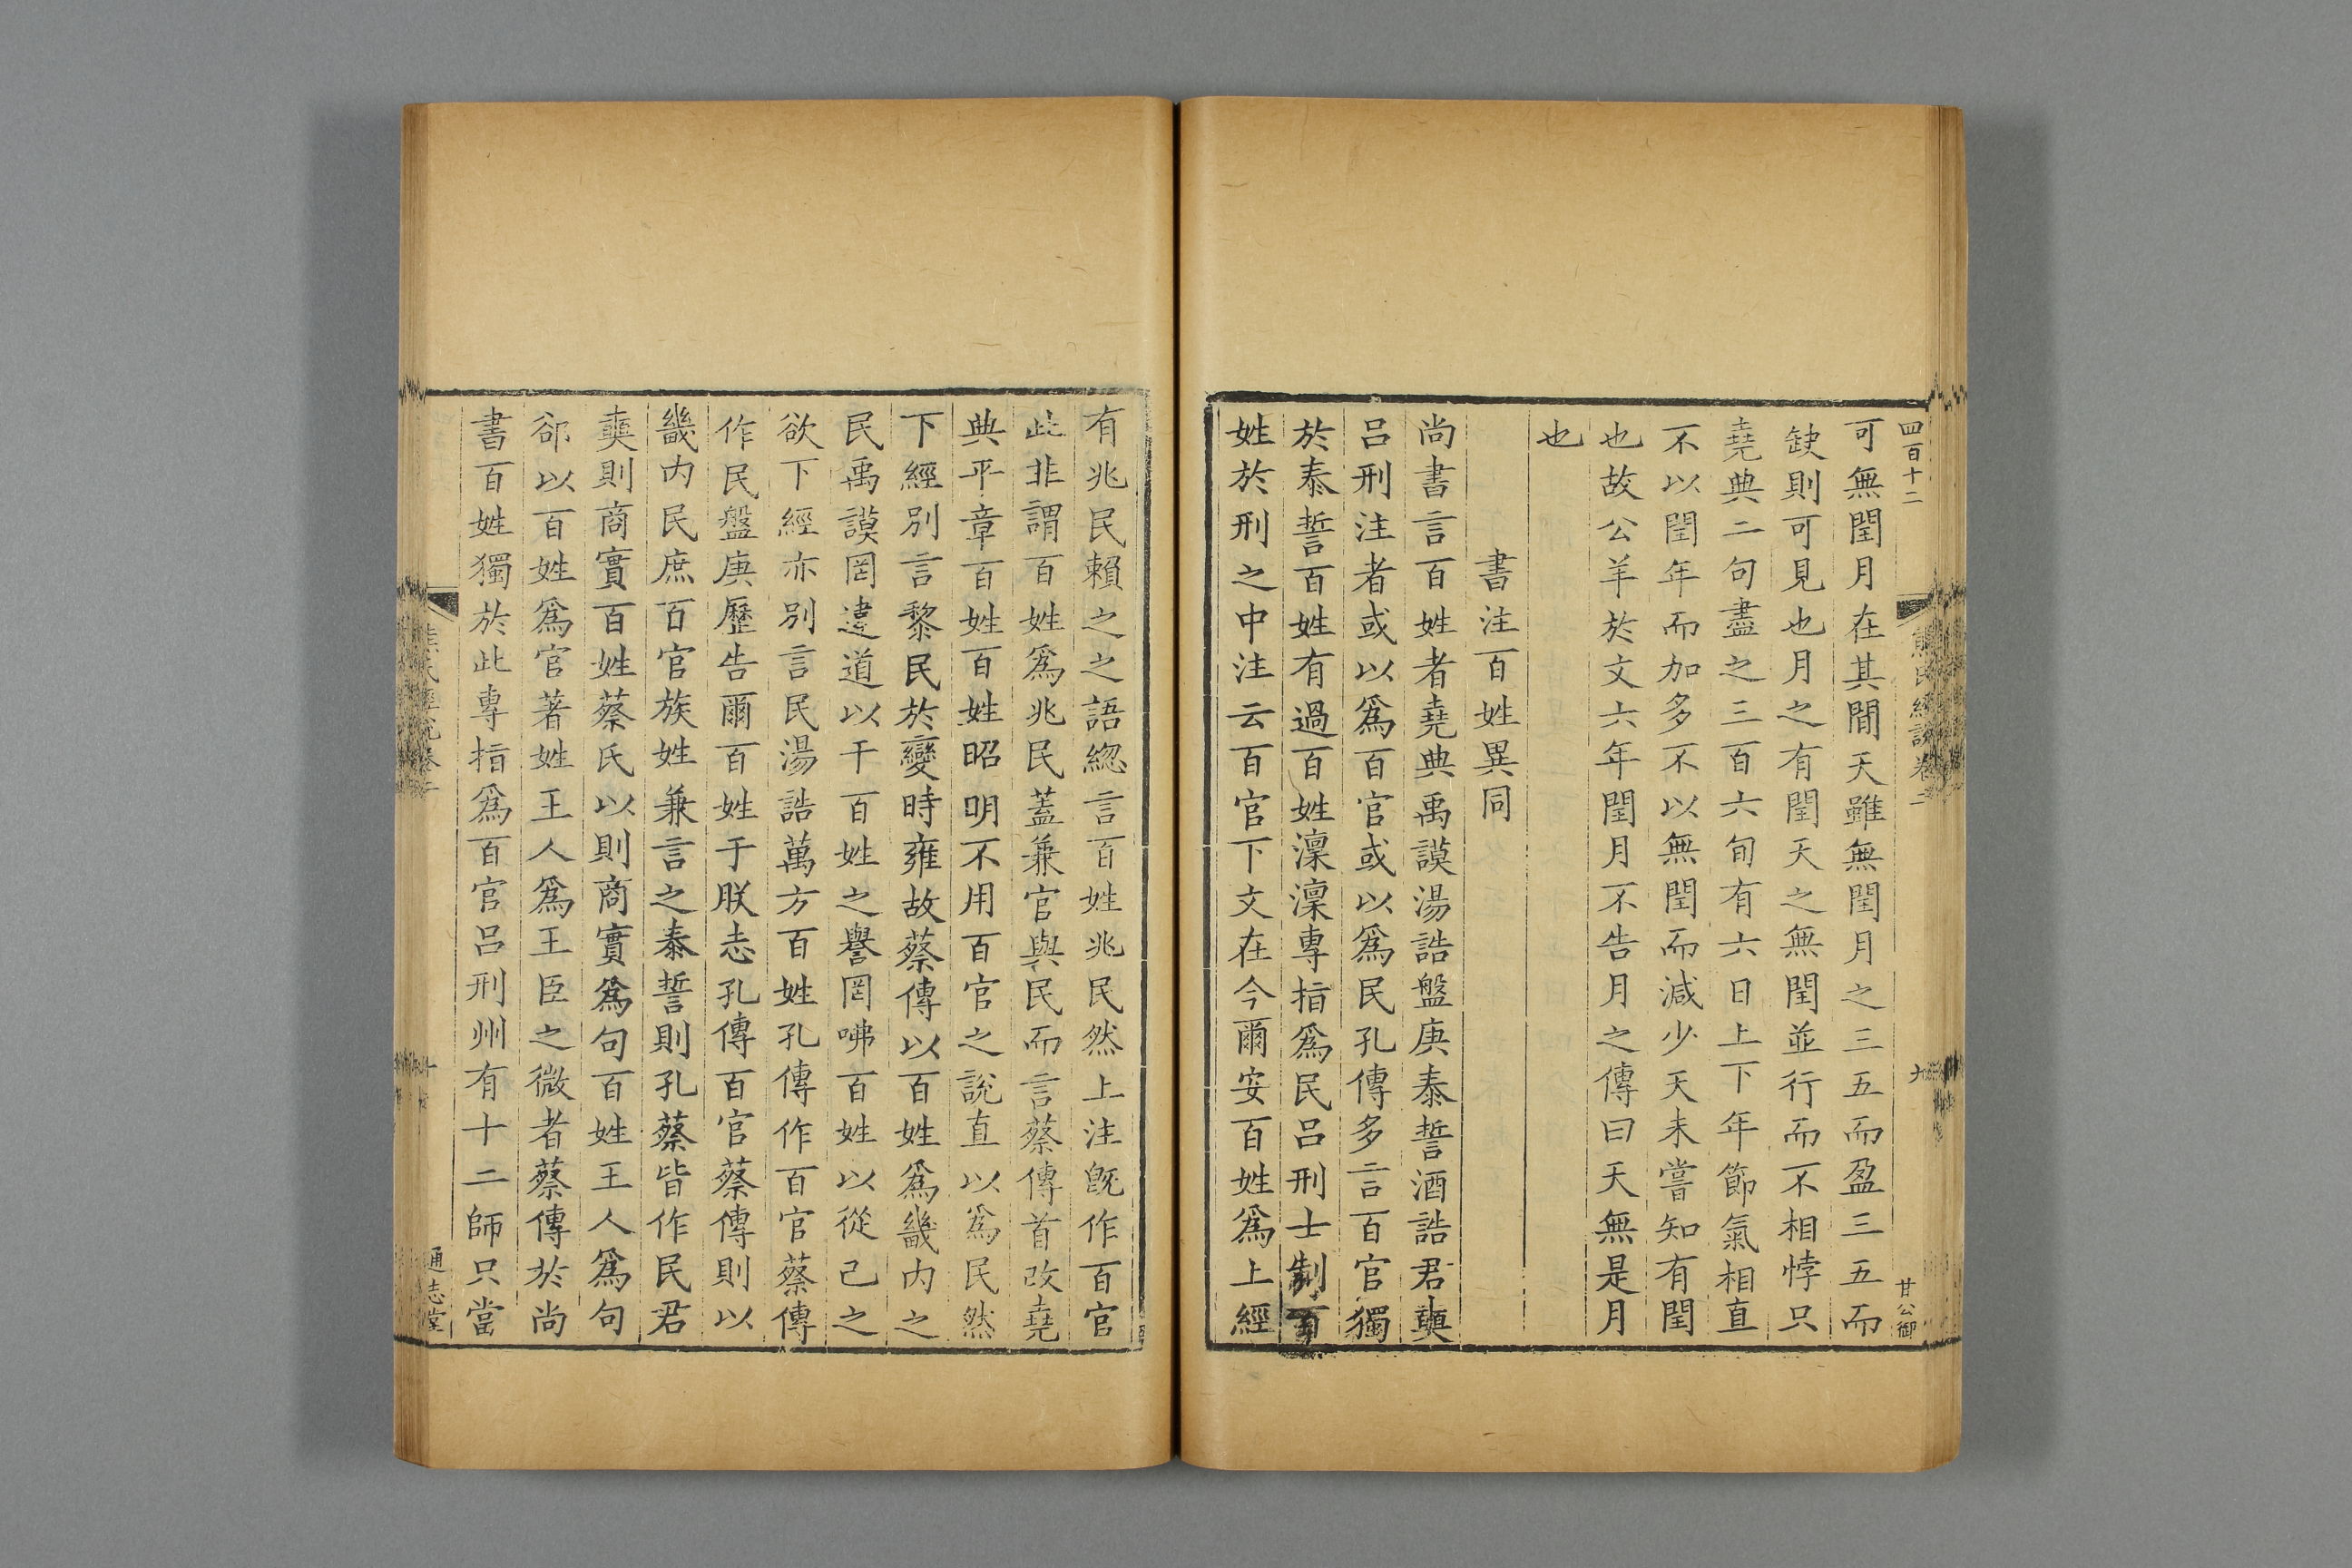 四百十二
熊氏經說卷二
九
甘公御
可無閏月在其間天雖無閏月之三五而盈三五而
缺則可見也月之有閏天之無閏並行而不相悖只
堯典二句盡之三百六旬有六日上下年節氣相直
不以閏年而加多不以無閏而減少天未嘗知有閏
也故公羊於文六年閏月不告月之傳曰天無是月
也
書注百姓異同
尚書言百姓者堯典禹謨湯誥盤庚泰誓酒誥君奭
呂刑注者或以爲百官或以爲民孔傳多言百官獨
於泰誓百姓有過百姓澟澟專指爲民呂刑士制百
姓於刑之中注云百官下文在今爾安百姓爲上經
有兆民賴之之語緫言百姓兆民然上注旣作百官
此非謂百姓爲兆民蓋兼官與民而言蔡傳首改堯
典平章百姓百姓昭明不用百官之說直以爲民然
下經別言黎民於變時雍故蔡傳以百姓爲畿内之
民禹謨罔違道以干百姓之譽罔咈百姓以從己之
欲下經亦別言民湯誥萬方百姓孔傳作百官蔡傳
作民盤庚歷告爾百姓于朕志孔傳百官蔡傳則以
畿内民庶百官族姓兼言之泰誓則孔蔡皆作民君
奭則商實百姓蔡氏以則商實爲句百姓王人爲句
郤以百姓爲官著姓王人爲王臣之微者蔡傳於尚
書百姓獨於此專指爲百官呂刑州有十二師只當
熊氏經說卷二
十
通志堂